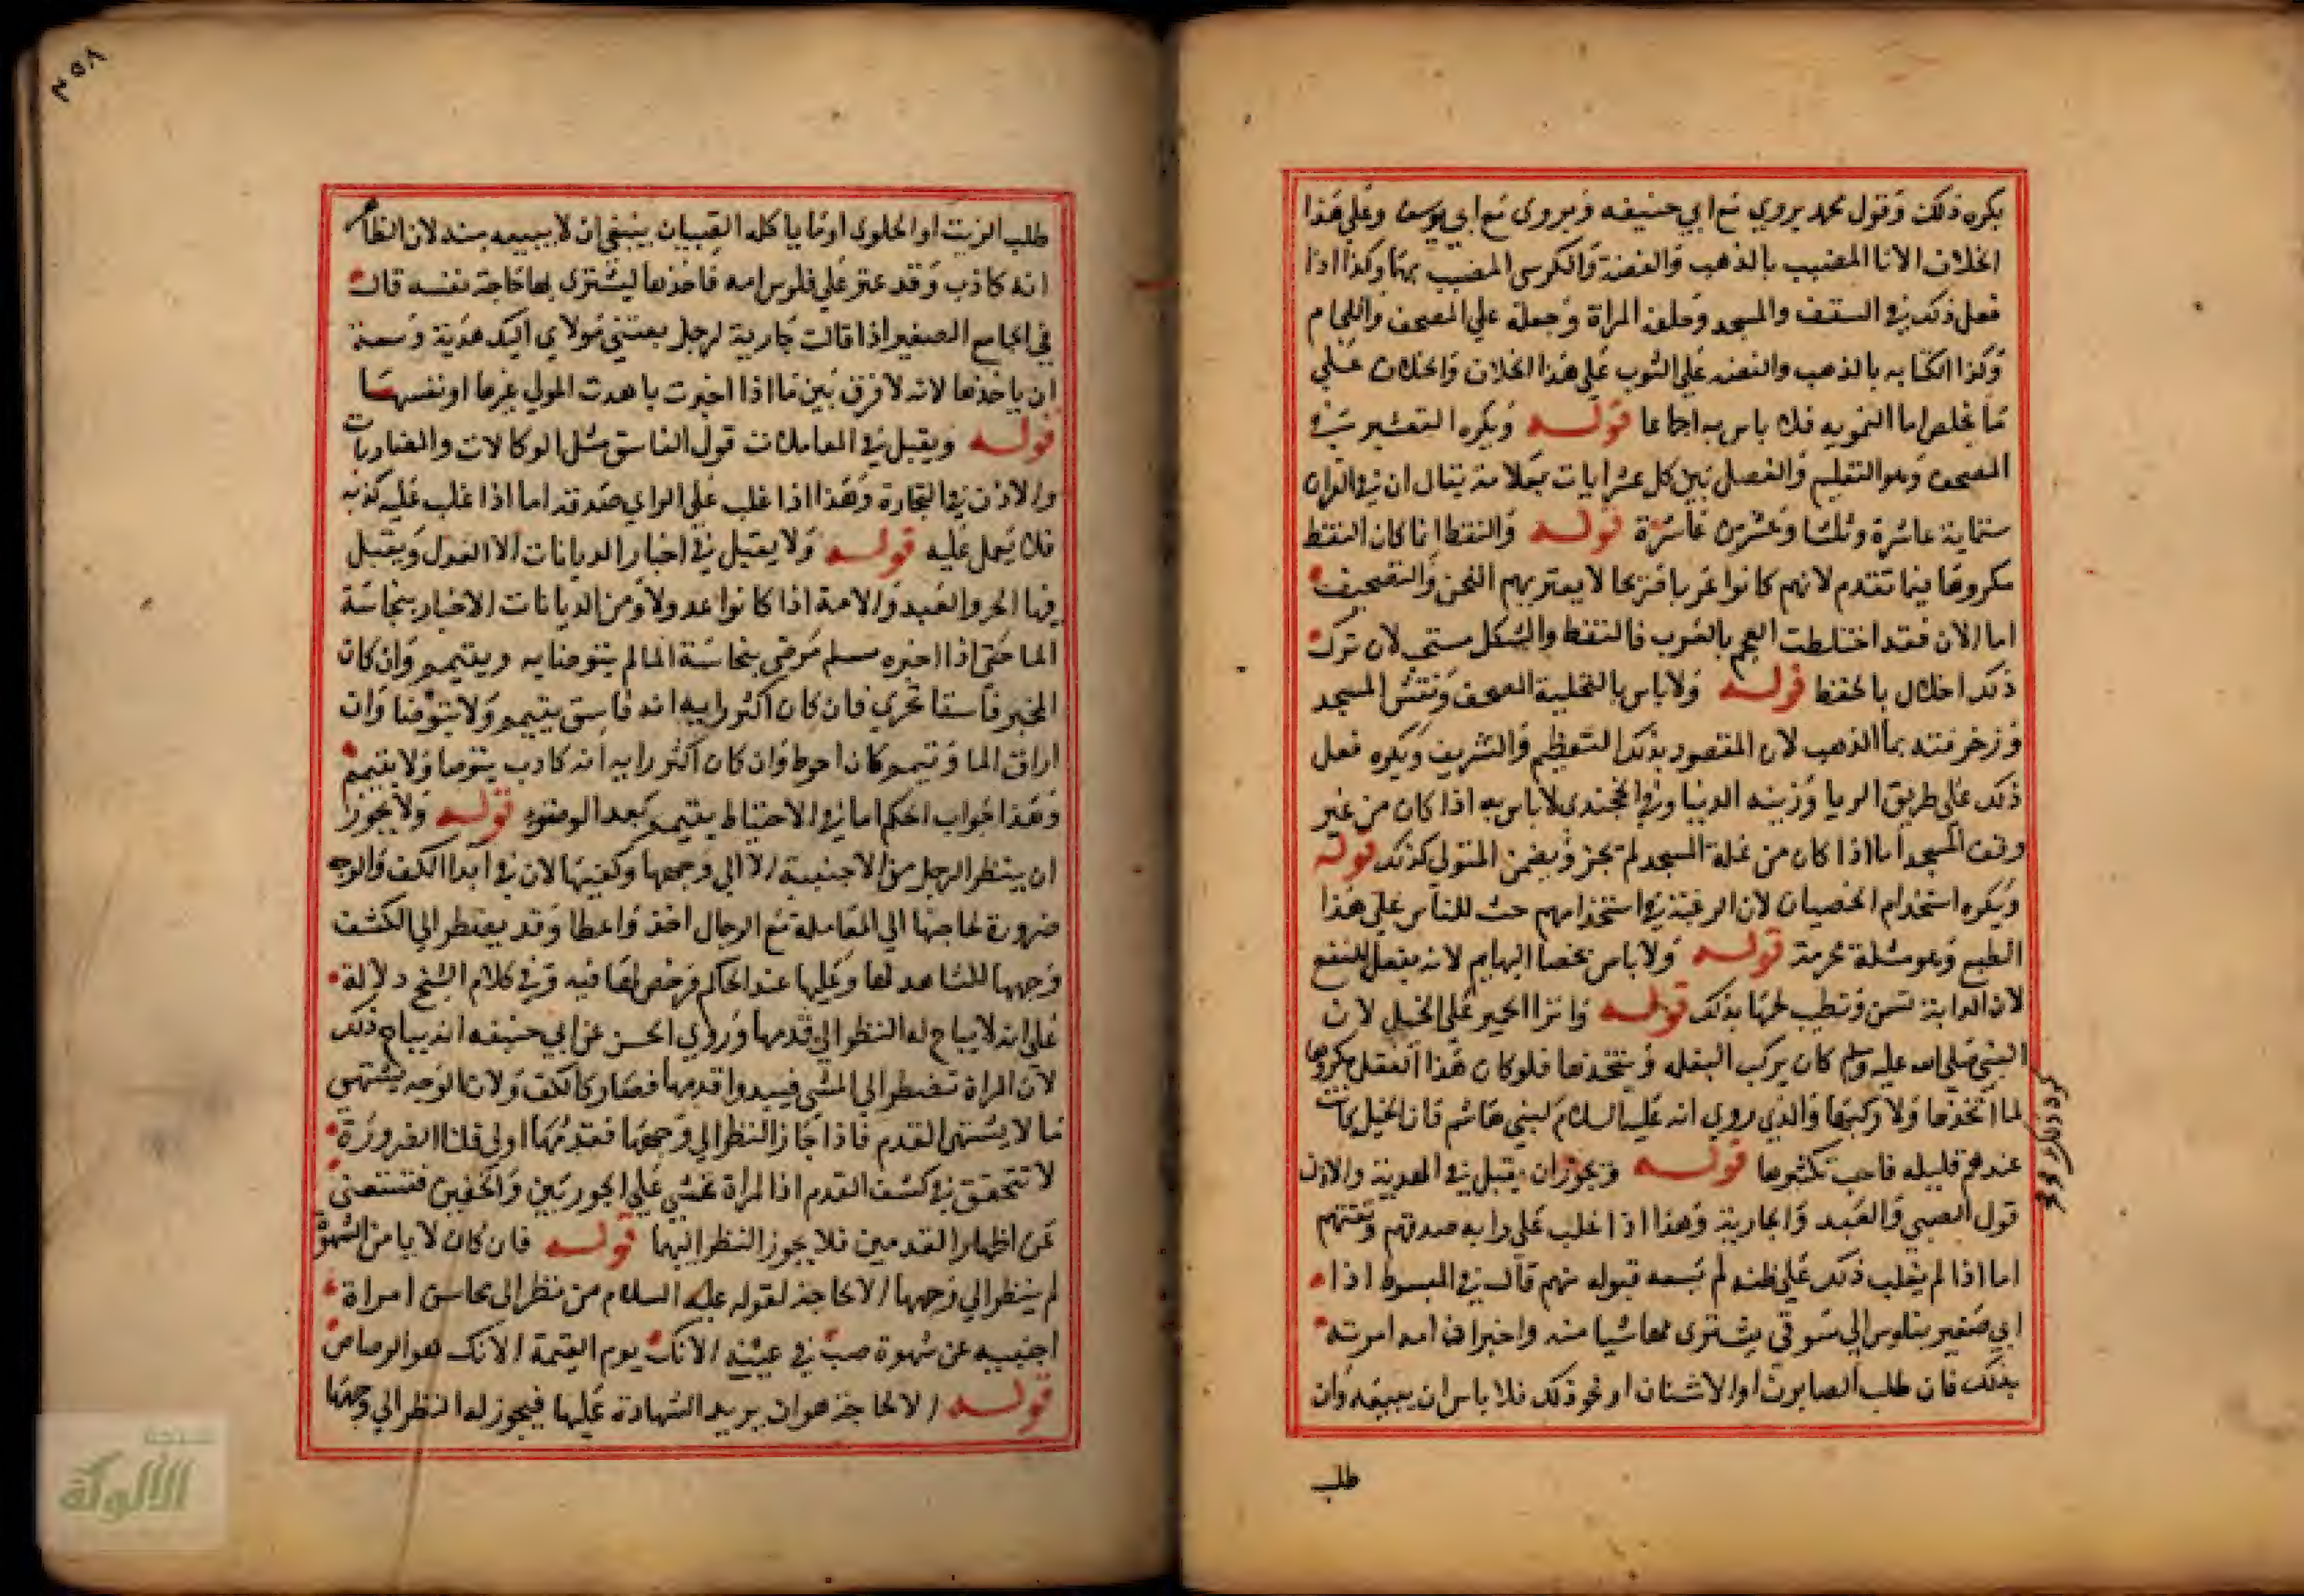 يكره ذلك وقول محمد يروي مع ابي حنيفه ويروى مع ابي يوسف وعلي هذا
الخلاف الانا المضبب بالذهب والفضة والكرسي المضبب بهما وكذا اذا
فعل ذلك في السقف والمسجد وحلقة المراة وجعله علي المصحف واللجام
وكذا الكتابه بالذهب والفضه علي الثوب علي هذا الخلاف والخلاف علي
ما يخلص اما التمويه فلا باس به اجماعا قوله ويكره التعشير في
المصحف وهو التعليم والفصل بين كل عشر ايات بعلامة يقال ان في القران
ستماية عاشرة وثلثا وعشرين عاشرة قوله والنقط انما كان النقط
مكروها فيما تقدم لانهم كانوا عربا قزيحا لا يعتريهم اللحن والتصحيف
اما الان فقد اختلطت العجم بالعرب فالنقط والشكل مستحب لان ترك
ذلك اخلال بالحفظ قوله ولا باس بالتحلية المصحف ونقش المسجد
وزخرفته بما الذهب لان المقصود بذلك التعظيم والتشريف ويكره فعل
ذلك علي طريق الريا وزينه الدنيا وفي الخجندي لا باس به اذا كان من غير
وقف المسجد اما اذا كان من غلة المسجد لم يجز ويضمن المتولي كذلك قوله
ويكره استخدام الخصيان لان الرغبة في استخدامهم حث للناس علي هذا
الطبع وهو مثلة محرمة قوله ولا باس بخصا البهايم لانه يفعل للنفع
لان الدابة تسمن وتطيب لحمها بذلك قوله وانزا الحمير علي الخيل لان
النبي صلي الله عليه وسلم كان يركب البغله ويتخذها فلو كان هذا الفعل مكروها
لما اتخذها ولا ركبها والذي روي انه عليه السلام لبني هاشم فان الخيل كانت
عندهم قليله فاحب تكثيرها قوله ويجوز ان يقبل في الهدية والاذن
قول الصبي والعبد والجارية وهذا اذا غلب علي رايه صدقهم وثقتهم
اما اذا لم يغلب ذلك علي ظنه لم يسعه قبوله منهم قال في المبسوط اذا
اتي صغير بفلوس الي سوقي يشتري بها شيا منه واخبر ان امه امرته
بذلك فان طلب الصابون او الاشنان او نحو ذلك فلا باس ان يبيعه وان
طلب
٣٥٨
طلب الزبيب او الحلوي او ما ياكله الصبيان ينبغي ان لا يبيعه منه لان الظاهر
انه كاذب وقد عثر علي فلوس امه فاخذها ليشتري بها حاجة نفسه قال
في الجامع الصغير اذا قالت جارية لرجل بعثني مولاي اليك هدية وسعه
ان ياخذها لانه لا فرق بين ما اذا اخبرت باهدت المولي غيرها او نفسها
قوله ويقبل في المعاملات قول الفاسق مثل الوكالات والمضاربات
والاذن في التجارة وهذا اذا غلب علي الراي صدقه اما اذا غلب عليه كذبه
فلا يعمل عليه قوله ولا يقبل في اخبار الديانات الا العدل ويقبل
فيها الحر والعبد والامة اذا كانوا عدولا ومن الديانات الاخبار بنجاسة
الما حتى اذا اخبره مسلم مرضي بنجاسة الما لم يتوضا به ويتيمم وان كان
المخبر فاسقا تحري فان كان اكثر رايه انه فاسق يتيمم ولا يتوضا وان
اراق الما وتيمم كان احوط وان كان اكثر رايه انه كاذب يتوضا ولا يتيمم
وهذا جواب الحكم اما في الاحتياط يتيمم بعد الوضوء قوله ولا يجوز
ان ينظر الرجل من الاجنبية الا الي وجهها وكفيها لان في ابدا الكف والوجه
ضرورة لحاجتها الي المعاملة مع الرجال اخذ واعطا وقد يضطر الي الكشف
وجهها للشاهد لها وعليها عند الحاكم فرخص لها فيه وفي كلام الشيخ دلالة
علي انه لا يباح له النظر الي قدمها وروي الحسن عن ابي حنيفه انه يباح ذلك
لان المراة تضطر الي المشي فيبدوا قدمها فصار كالكف ولان الوجه يشتهى
ما لا يشتهى القدم فاذا جاز النظر الي وجهها فقدمها اولي قلنا الضرورة
لا تتحقق في كشف القدم اذ المراة تمشي علي الجوربين والخفين فتستغني
عن اظهار القدمين فلا يجوز النظر اليهما قوله فان كان لا يامن الشهوة
لم ينظر الي وجهها الا لحاجة لقوله عليه السلام من نظر الى محاسن امراة
اجنبيه عن شهوة صب في عينيه الانك يوم القيمة الانك هو الرصاص
قوله الا لحاجة هو ان يريد الشهادة عليها فيجوز له النظر الي وجهها
شبكة
الألوكة